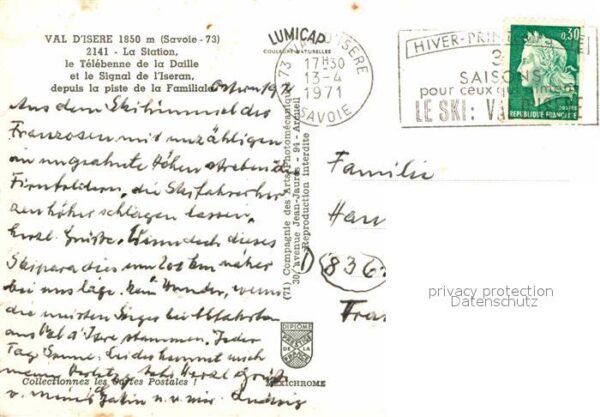 VAL D'ISERE 1850 m (Savoie - 73)
2141 - La Station,
le Télébenne de la Daille
et le Signal de l'Iseran,
depuis la piste de la Familiale
Ostern 1971
Aus dem Skihimmel des
Franzosen mit unzähligen
an ungeahnte Höhen strebend
Firnfeldern, die Skifahrerher
zen höher schlagen lassen,
herzl. Grüße. Wenn doch dieses
Skiparadies um 200 km näher
bei uns läge. Kein Wunder, wenn
die meisten Sieger bei Abfahrten
aus Val d'Isere stammen. Jeden
Tag Sonne.
Herzl. Grüße
v. meiner Gattin u. v. mir. Ludwig
Collectionnez les Cartes Postales !
LUMICAP
COULEURS NATURELLES
(71) Compagnie des Arts Photomécaniques
30, avenue Jean-Jaurès - 94 - Arcueil
Reproduction Interdite
DIPLOME
PRESTIGE
DE LA
FRANCE
MEXICHROME
73 VAL D'ISERE
17H30
13-4
1971
SAVOIE
HIVER-PRINTEMPS
3
SAISONS
pour ceux qui aiment
LE SKI: VAL
0,30
REPUBLIQUE FRANÇAISE
Familie
Han
D (836
privacy protection
Datenschutz
Fran